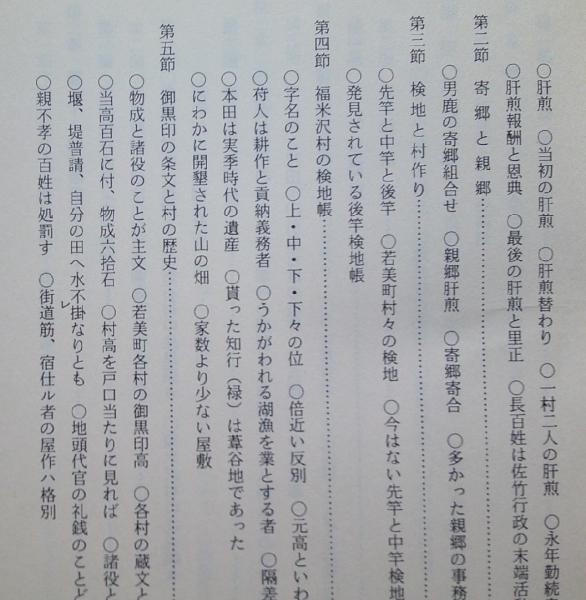 ○肝煎　○当初の肝煎　○肝煎替わり　○一村二人の肝煎　○永年勤続
○肝煎報酬と恩典　○最後の肝煎と里正　○長百姓は佐竹行政の末端活
第二節　寄郷と親郷……………
○男鹿の寄郷組合せ　○親郷肝煎　○寄郷寄合　○多かった親郷の事務
第三節　検地と村作り……………
○先竿と中竿と後竿　○若美町村々の検地　○今はない先竿と中竿検地
○発見されている後竿検地帳
第四節　福米沢村の検地帳……………
○字名のこと　○上・中・下・下々の位　○倍近い反別　○元高といわ
○苻人は耕作と貢納義務者　○うかがわれる湖漁を業とする者　○隔差
○本田は実季時代の遺産　○貰った知行（禄）は葦谷地であった
○にわかに開墾された山の畑　○家数より少ない屋敷
第五節　御黒印の条文と村の歴史……………
○物成と諸役のことが主文　○若美町各村の御黒印高　○各村の蔵文と
○当高百石に付、物成六拾石　○村高を戸口当たりに見れば　○諸役と
○堰、堤普請、自分の田へ水不㆑掛なりとも　○地頭代官の礼銭のことど
○親不孝の百姓は処罰す　○街道筋、宿仕ル者の屋作ハ格別